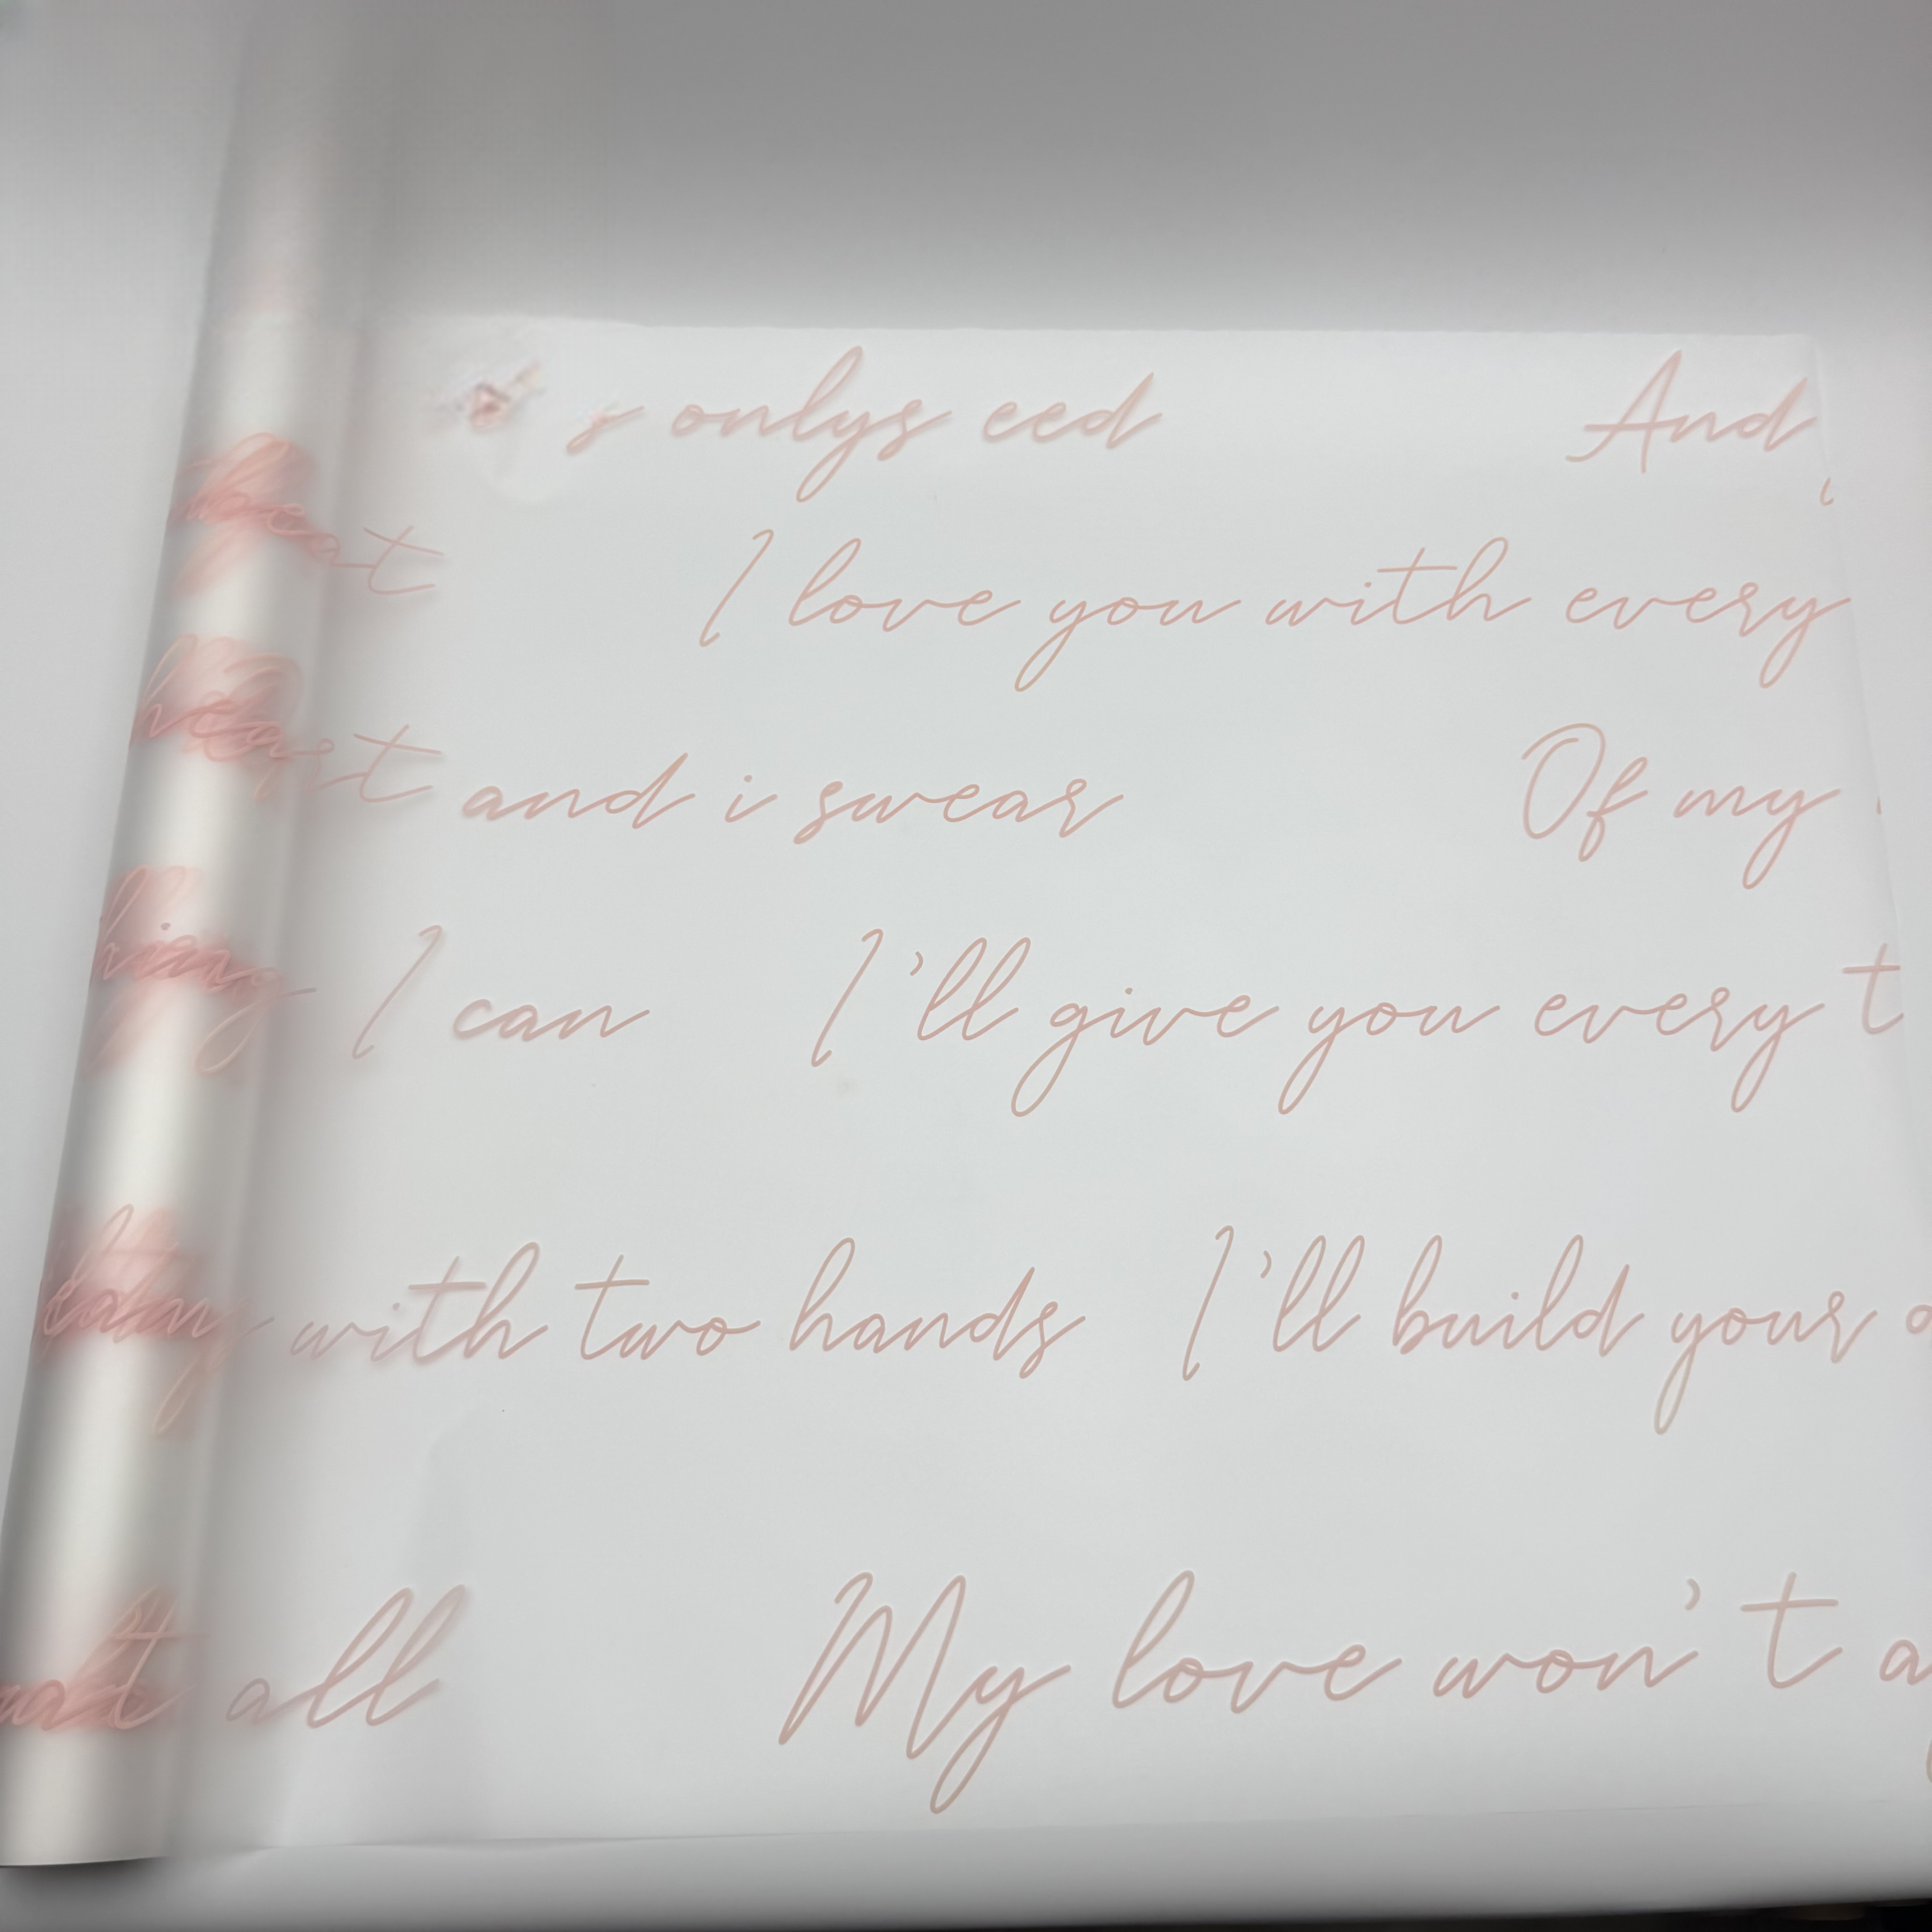 s onlys eed And
beat I love you with every
heart and i swear Of my
I can I'll give you every t
with two hands I'll build your
all My love won't